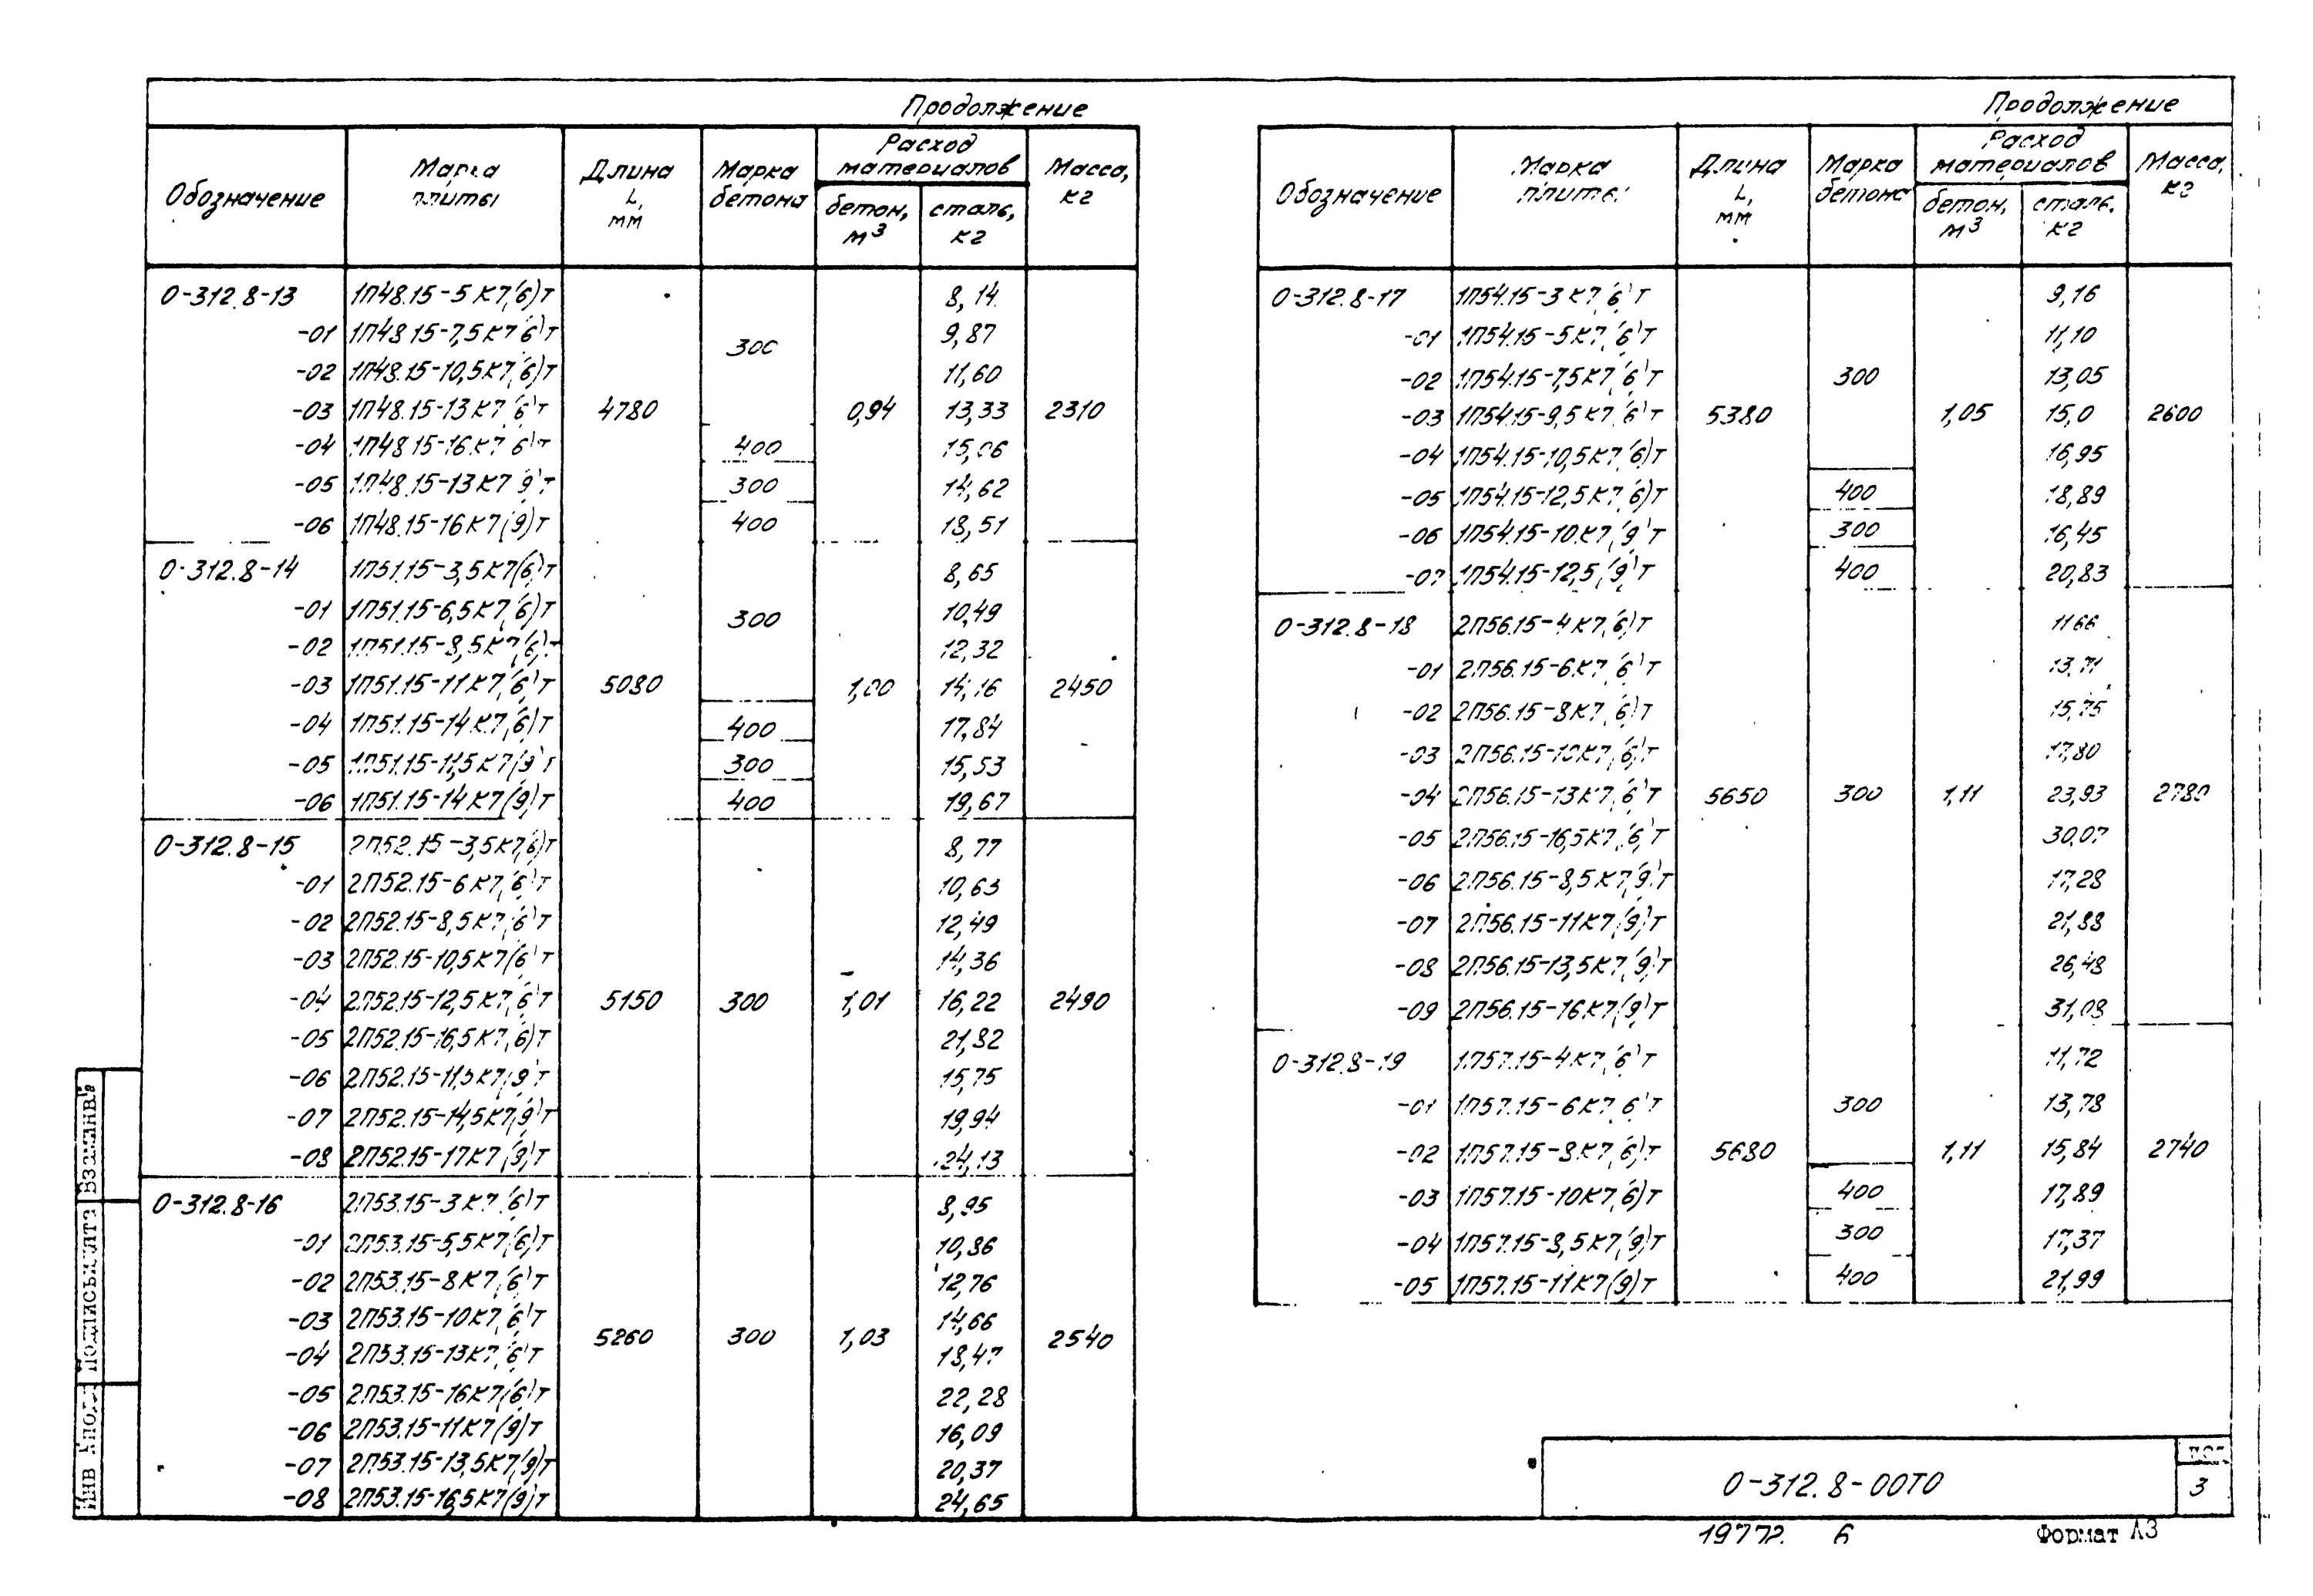 Продолжение
Обозначение Марка плиты Длина L, мм Марка бетона Расход материалов бетон, м³ сталь, кг Масса, кг
0-312.8-13 1П48.15-5К7(6)Т 8,14
-01 1П48.15-7,5К7(6)Т 300 9,87
-02 1П48.15-10,5К7(6)Т 11,60
-03 1П48.15-13К7(6)Т 4780 0,94 13,33 2310
-04 1П48.15-16К7(6)Т 400 15,06
-05 1П48.15-13К7(9)Т 300 14,62
-06 1П48.15-16К7(9)Т 400 18,51
0-312.8-14 1П51.15-3,5К7(6)Т 8,65
-01 1П51.15-6,5К7(6)Т 300 10,49
-02 1П51.15-8,5К7(6)Т 12,32
-03 1П51.15-11К7(6)Т 5080 1,00 14,16 2450
-04 1П51.15-14К7(6)Т 400 17,84
-05 1П51.15-11,5К7(9)Т 300 15,53
-06 1П51.15-14К7(9)Т 400 19,67
0-312.8-15 2П52.15-3,5К7(6)Т 8,77
-01 2П52.15-6К7(6)Т 10,63
-02 2П52.15-8,5К7(6)Т 12,49
-03 2П52.15-10,5К7(6)Т 14,36
-04 2П52.15-12,5К7(6)Т 5150 300 1,01 16,22 2490
-05 2П52.15-16,5К7(6)Т 21,82
-06 2П52.15-11,5К7(9)Т 15,75
-07 2П52.15-14,5К7(9)Т 19,94
-08 2П52.15-17К7(9)Т 24,13
0-312.8-16 2П53.15-3К7(6)Т 8,95
-01 2П53.15-5,5К7(6)Т 10,86
-02 2П53.15-8К7(6)Т 12,76
-03 2П53.15-10К7(6)Т 14,66
5260 300 1,03 2540
-04 2П53.15-13К7(6)Т 18,47
-05 2П53.15-16К7(6)Т 22,28
-06 2П53.15-11К7(9)Т 16,09
-07 2П53.15-13,5К7(9)Т 20,37
-08 2П53.15-16,5К7(9)Т 24,65
Продолжение
Обозначение Марка плиты Длина L, мм Марка бетона Расход материалов бетон, м³ сталь, кг Масса, кг
0-312.8-17 1П54.15-3К7(6)Т 9,16
-01 1П54.15-5К7(6)Т 11,10
-02 1П54.15-7,5К7(6)Т 300 13,05
-03 1П54.15-9,5К7(6)Т 5380 1,05 15,0 2600
-04 1П54.15-10,5К7(6)Т 16,95
-05 1П54.15-12,5К7(6)Т 400 18,89
-06 1П54.15-10К7(9)Т 300 16,45
-07 1П54.15-12,5(9)Т 400 20,83
0-312.8-18 2П56.15-4К7(6)Т 11,66
-01 2П56.15-6К7(6)Т 13,71
-02 2П56.15-8К7(6)Т 15,75
-03 2П56.15-10К7(6)Т 17,80
-04 2П56.15-13К7(6)Т 5650 300 1,11 23,93 2780
-05 2П56.15-16,5К7(6)Т 30,07
-06 2П56.15-8,5К7(9)Т 17,28
-07 2П56.15-11К7(9)Т 21,88
-08 2П56.15-13,5К7(9)Т 26,48
-09 2П56.15-16К7(9)Т 31,08
0-312.8-19 1П57.15-4К7(6)Т 11,72
-01 1П57.15-6К7(6)Т 300 13,78
-02 1П57.15-8К7(6)Т 5680 1,11 15,84 2740
-03 1П57.15-10К7(6)Т 400 17,89
-04 1П57.15-8,5К7(9)Т 300 17,37
-05 1П57.15-11К7(9)Т 400 21,99
0-312.8-00ТО
3
19772 6 Формат А3